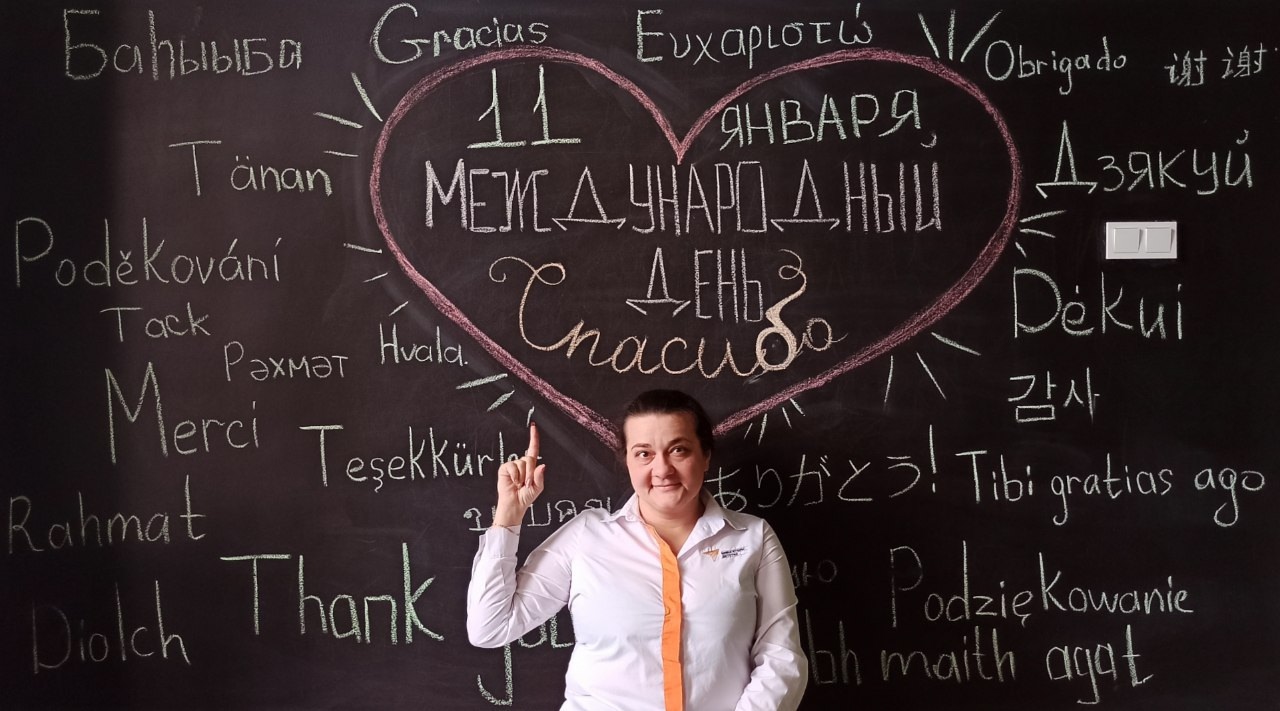 Баһыыба
Gracias
Ευχαριστώ
Obrigado
谢谢
11 ЯНВАРЯ
МЕЖДУНАРОДНЫЙ
ДЕНЬ
Спасибо
Tänan
Дзякуй
Poděkování
Dėkui
Tack
Рәхмәт
Hvala
Merci
감사
Teşekkürle
ありがとう!
Tibi gratias ago
Rahmat
Thank
Podziękowanie
Diolch
maith agat